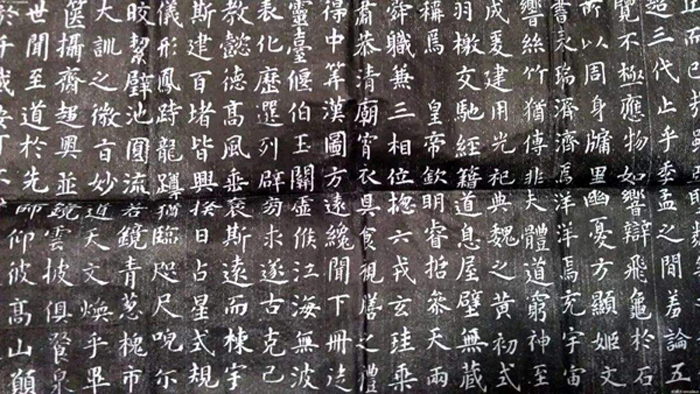 超三代止乎季孟之間羞論五
覽不極應物如響辯飛龜於石
所以周身牖里幽憂方顯姬文
書表瑞濟濟焉洋洋焉充宇宙
響絲竹猶傳非夫體道窮神至
成爰建用光祀典魏之黃初式
羽檄交馳經籍道息屋壁無藏
稱焉 皇帝欽明睿哲參天兩
舜職兼三相位揔六戎玄珪乘
肅恭清廟宵衣具食視膳之禮
得中筭漢圖方遠纔聞下冊從
靈臺偃伯玉關虛候江海無波
表化歷選列辟旁求遂古克己
教懿德高風垂裒斯遠而棟宇
斯建百堵皆興揆日占星式規
儀形鳳跱龍蹲猶臨咫尺尔
皎絜璧池圓流若鏡青葱槐市
大訓之微旨妙道天文煥乎畢
篋攝齊趨奧並鏡雲披俱餐泉
世聞至道於先師仰彼高山願